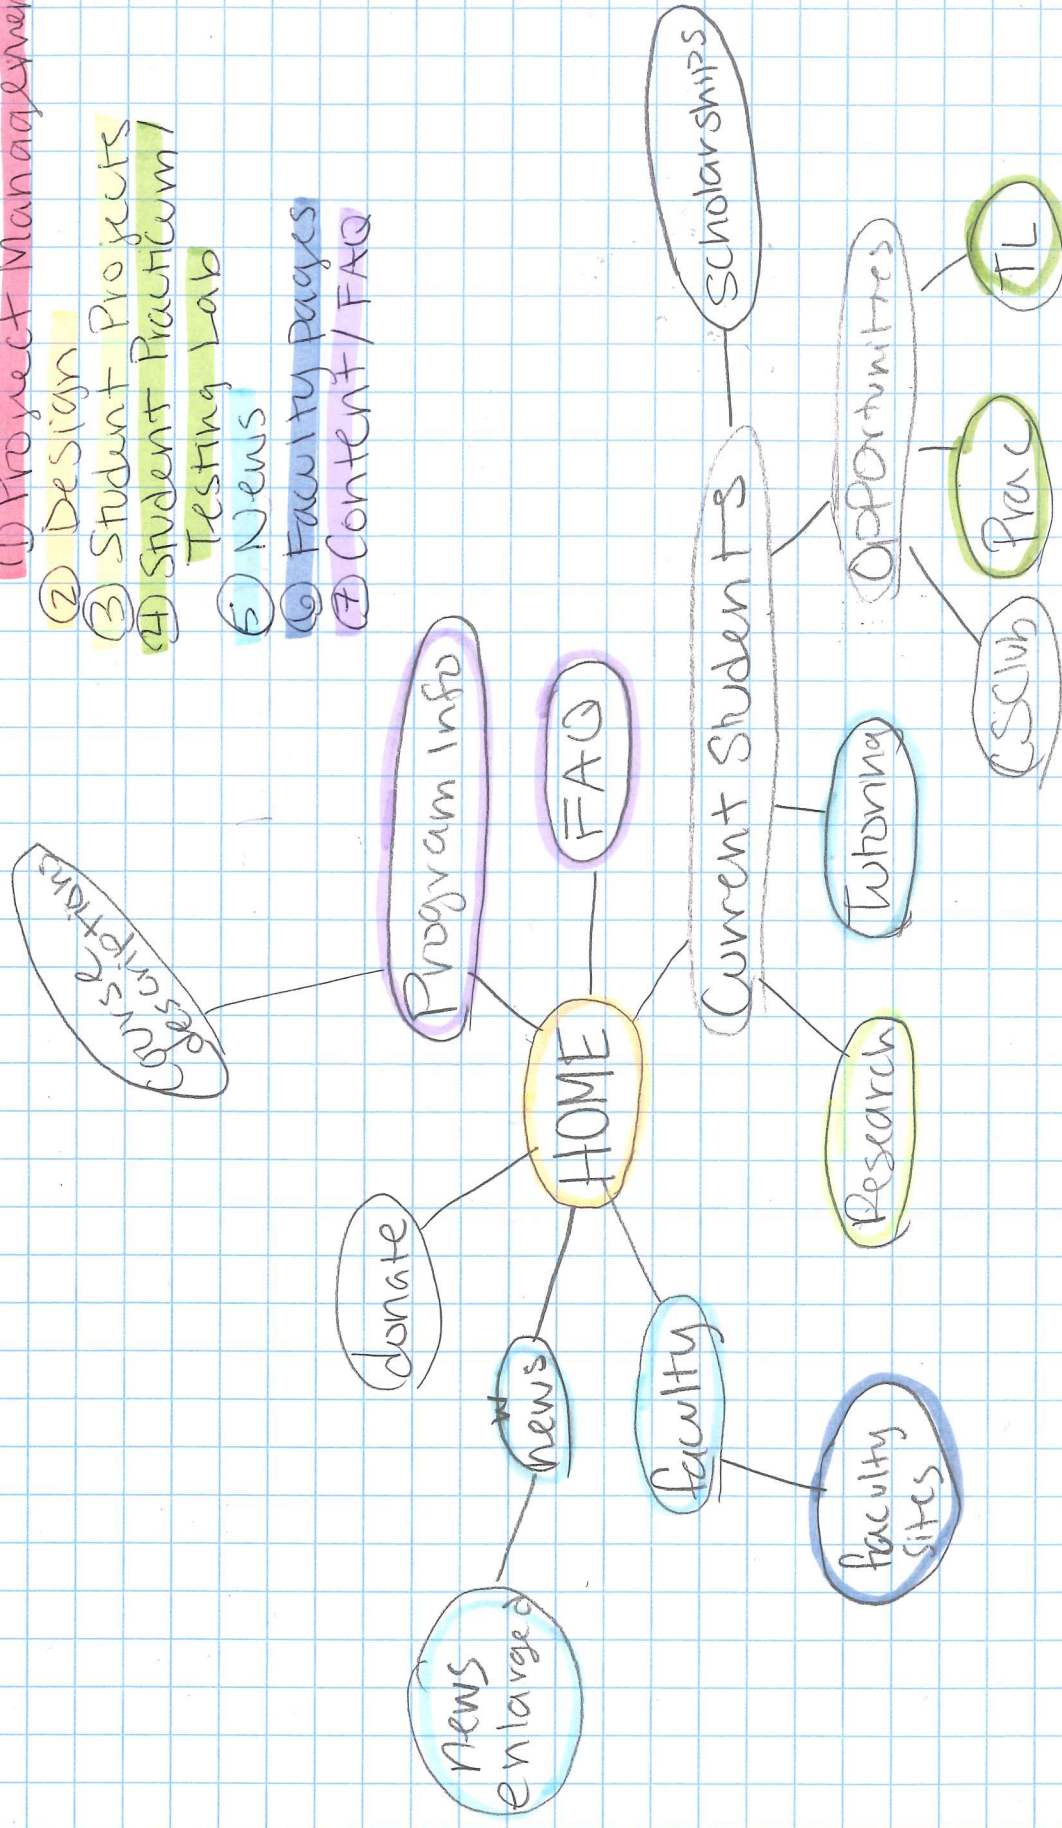 (1) Project Managemen
(2) Design
(3) Student Projects
(4) Student Practicum/
Testing Lab
(5) News
(6) Faculty pages
(7) Content/FAQ
Course
descriptions
Program Info
donate
FAQ
HOME
news
news
enlarged
faculty
faculty
sites
Current Students
Scholarships
Research
Tutoring
Opportunities
CSClub
Prac
TL